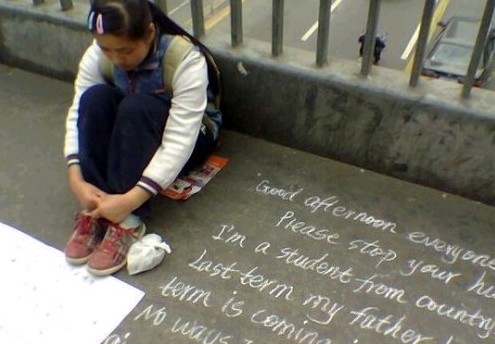 Good afternoon everyone
Please stop your
I'm a student from country
Last term my father
term is coming
No ways